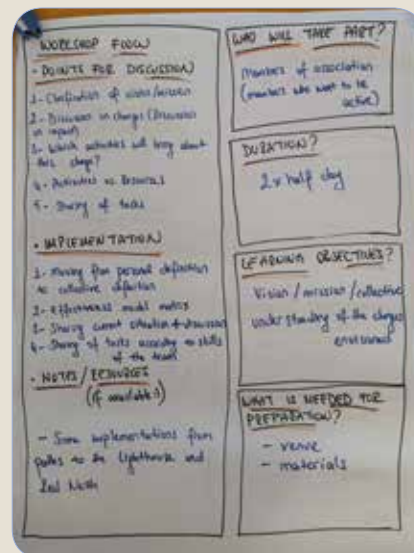 WORKSHOP FLOW
- POINTS FOR DISCUSSION
1- Clarification of vision/mission
2- Discussion on change (Discussion
on impact)
3- Which activities will bring about
this change?
4- Activities vs Resources
5- Sharing of tasks
• IMPLEMENTATION
1- Moving from personal definition
to collective definition
2- Effectiveness model matrix
3- Sharing current situation + discussion
4- Sharing of tasks according to skills
of the team
• NOTES / RESOURCES
(if available)
- Some implementations from
to the Lighthouse and
WHO WILL TAKE PART?
Members of association
(members who want to be
active)
DURATION?
2x half day
LEARNING OBJECTIVES?
Vision / mission / collective
understanding of the changes
envisioned
WHAT IS NEEDED FOR
PREPARATION?
- venue
- materials